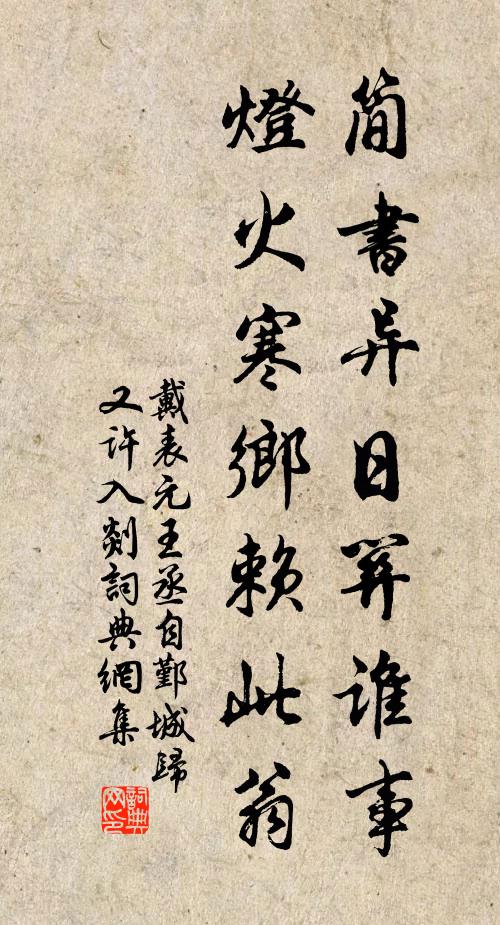 簡書异日關誰事
燈火寒鄉賴此翁
戴表元王丞自鄞城歸
又許入剡詞典網集
詞典
网印